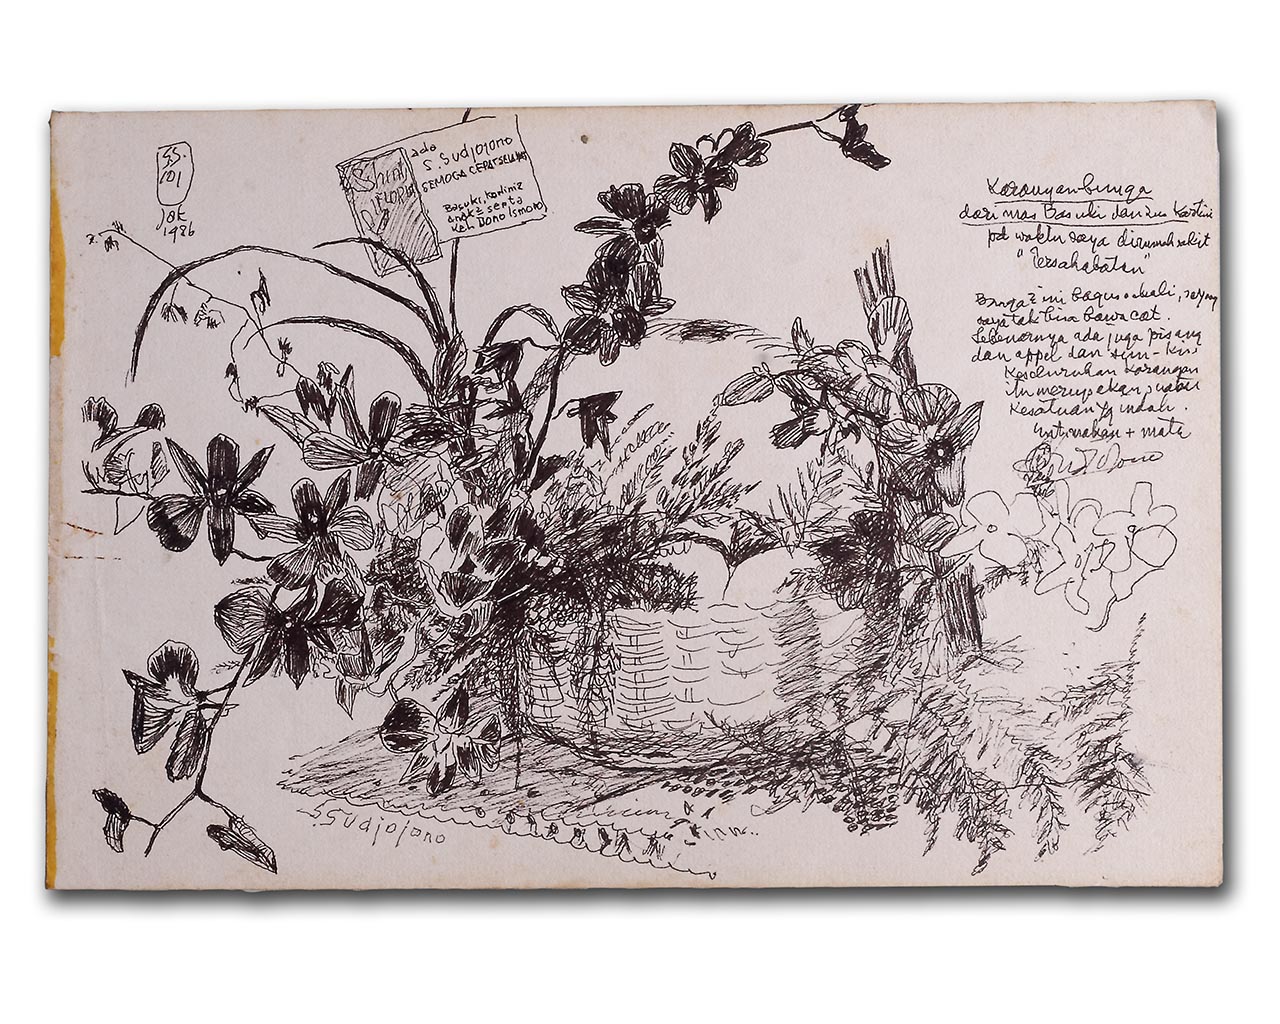 S.S.
101
Jak
1986
Shinta
FLORIST
ada
S. Sudjojono
SEMOGA CEPAT SEMBUH
Basuki, Kartini2
anak2 serta
Kel. Dono Ismoro
Karangan bunga
dari mas Basuki dan zus Kartini
pd waktu saya dirumah sakit
"Persahabatan"
Bunga2 ini bagus sekali, sayang
saya tak bisa bawa cat.
Sebenarnya ada juga pisang
dan appel dan
Keseluruhan karangan
ini merupakan suatu
Kesatuan yg indah.
untuk makan + mata
S. Sudjojono